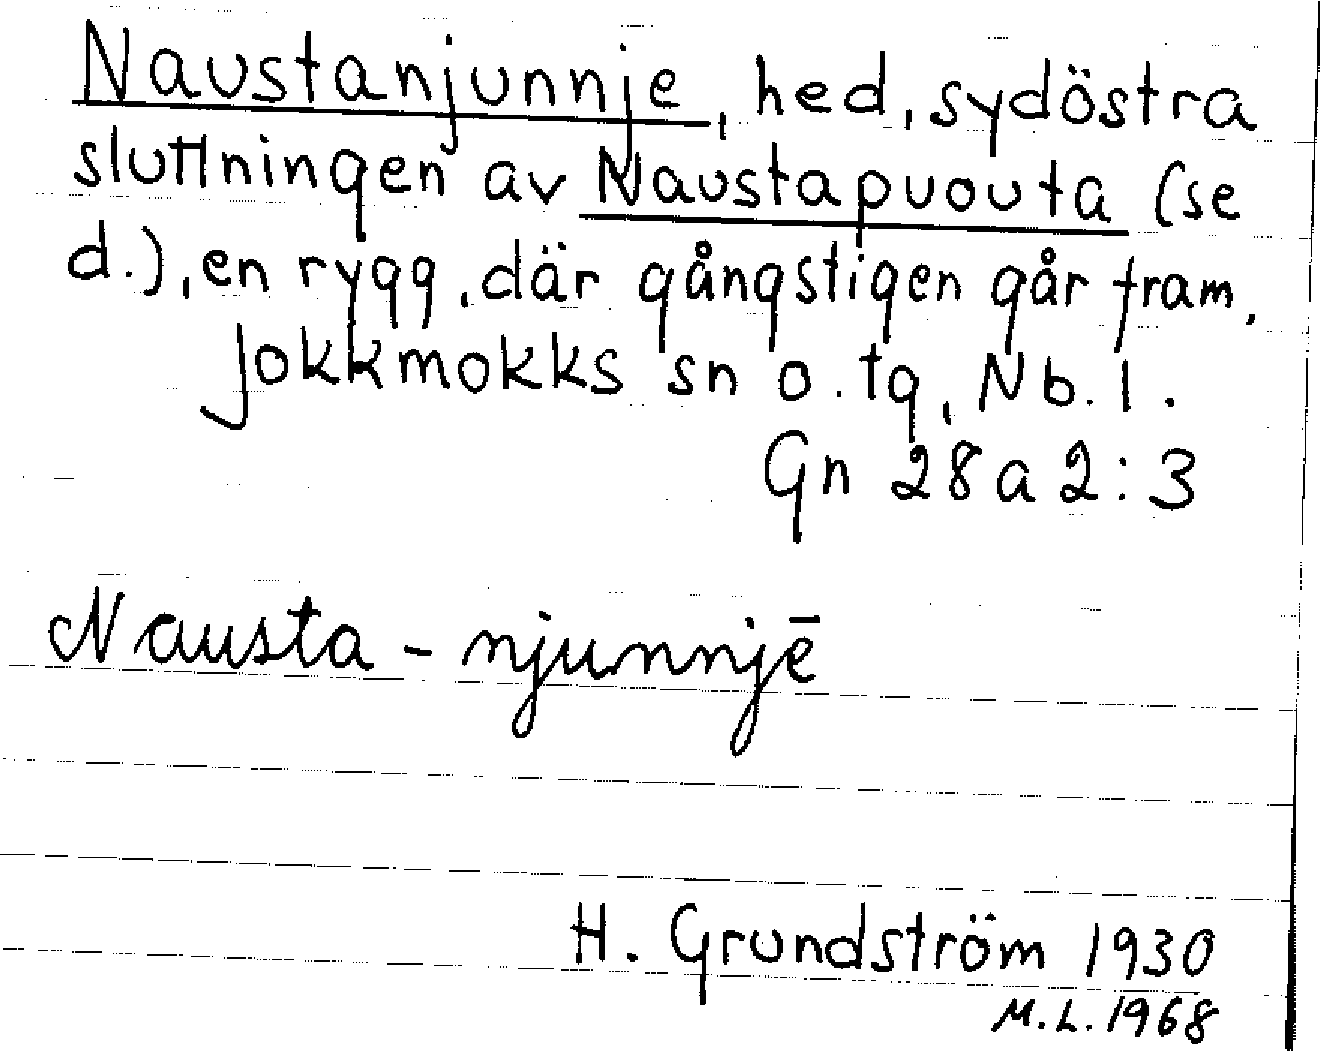 Naustanjunnje, hed, sydöstra
sluttningen av Naustapuouta (se
d.), en rygg, där gångstigen går fram,
Jokkmokks sn o. tg, Nb. l.
Gn 28a2:3
Nausta-njunnjē
H. Grundström 1930
M.L. 1968